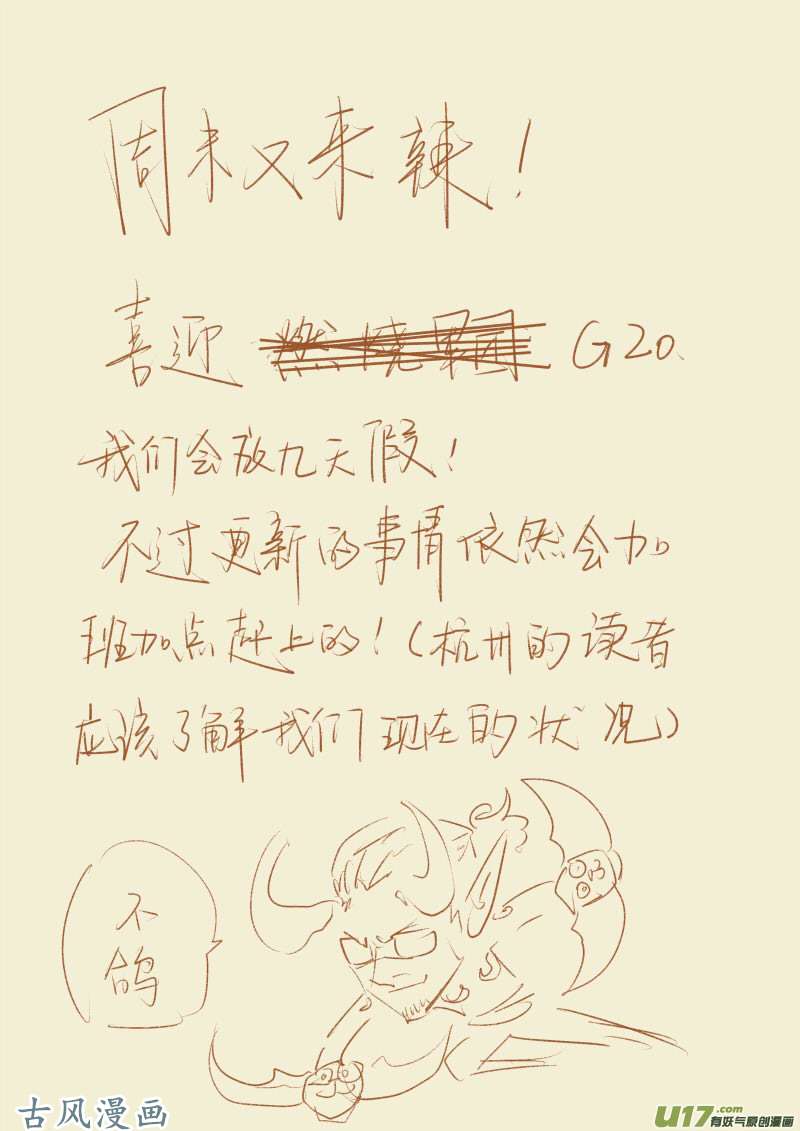 周末又来辣！
喜迎燃烧军团G20、
我们会放九天假！
不过更新的事情依然会加
班加点赶上的！（杭州的读者
应该了解我们现在的状况）
不
鸽
古风漫画
U17.com
有妖气原创漫画